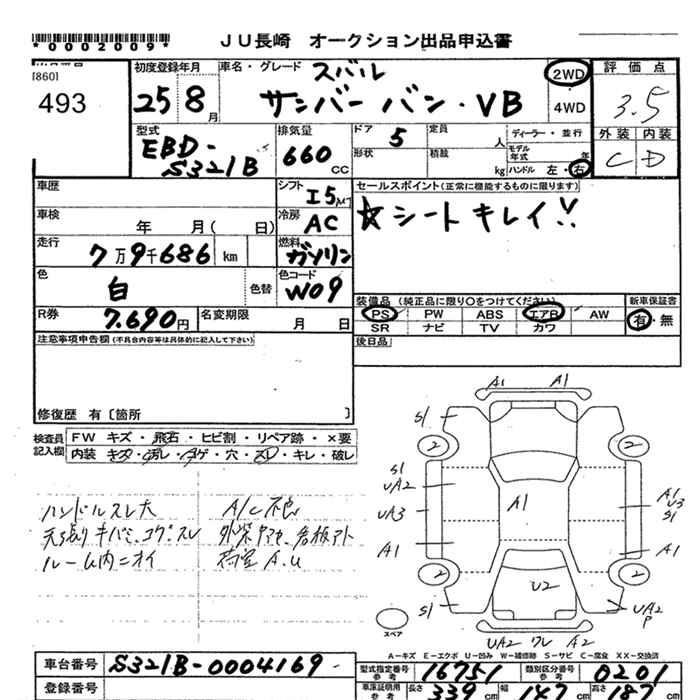 *0002009*
JU長崎 オークション出品申込書
[860]
493
初度登録年月
25 8月
車名・グレード
スバル
サンバー バン・VB
2WD
4WD
評価点
3.5
外装 内装
C D
型式
EBD-
S321B
排気量
660
CC
ドア
5
定員
人
形状
積載
kg
ディーラー・並行
モデル年式
年
ハンドル 左・右
車歴
シフト
I5
MT
セールスポイント(正常に機能するものに限ります)
☆シート キレイ!!
車検
年 月( 日)
冷房
AC
走行
7万9千686 km
燃料
ガソリン
色
白
色替
色コード
W09
装備品 (純正品に限り○をつけてください)
新車保証書
PS PW ABS エアB AW
SR ナビ TV カワ
有・無
R券
7.690円
名変期限
月 日
後日品
注意事項申告欄(不具合内容等は具体的に記入して下さい)
修復歴 有[箇所 ]
検査員
記入欄
FW キズ・飛石・ヒビ割・リペア跡・×要
内装 キズ・汚レ・コゲ・穴・スレ・キレ・破レ
ハンドルスレ大
A/C不良
天張りキバミ、コゲ、スレ
ルーム内ニオイ
A1 A1
S1 S1
2 2
S1
UA2
UA3
A1
A1
A1
U3
S1
A1
2 2
U2
S1
UA2
P
スペア
UA2 ワレ A2
A-キズ E-エクボ U-凹み W-補修跡 S-サビ C-腐食 XX-交換済
車台番号
S321B-0004169
登録番号
型式指定番号
参考
16751
類別区分番号
参考
0201
車庫証明用
参考
長さ
339 cm
幅
147 cm
高さ
187 cm